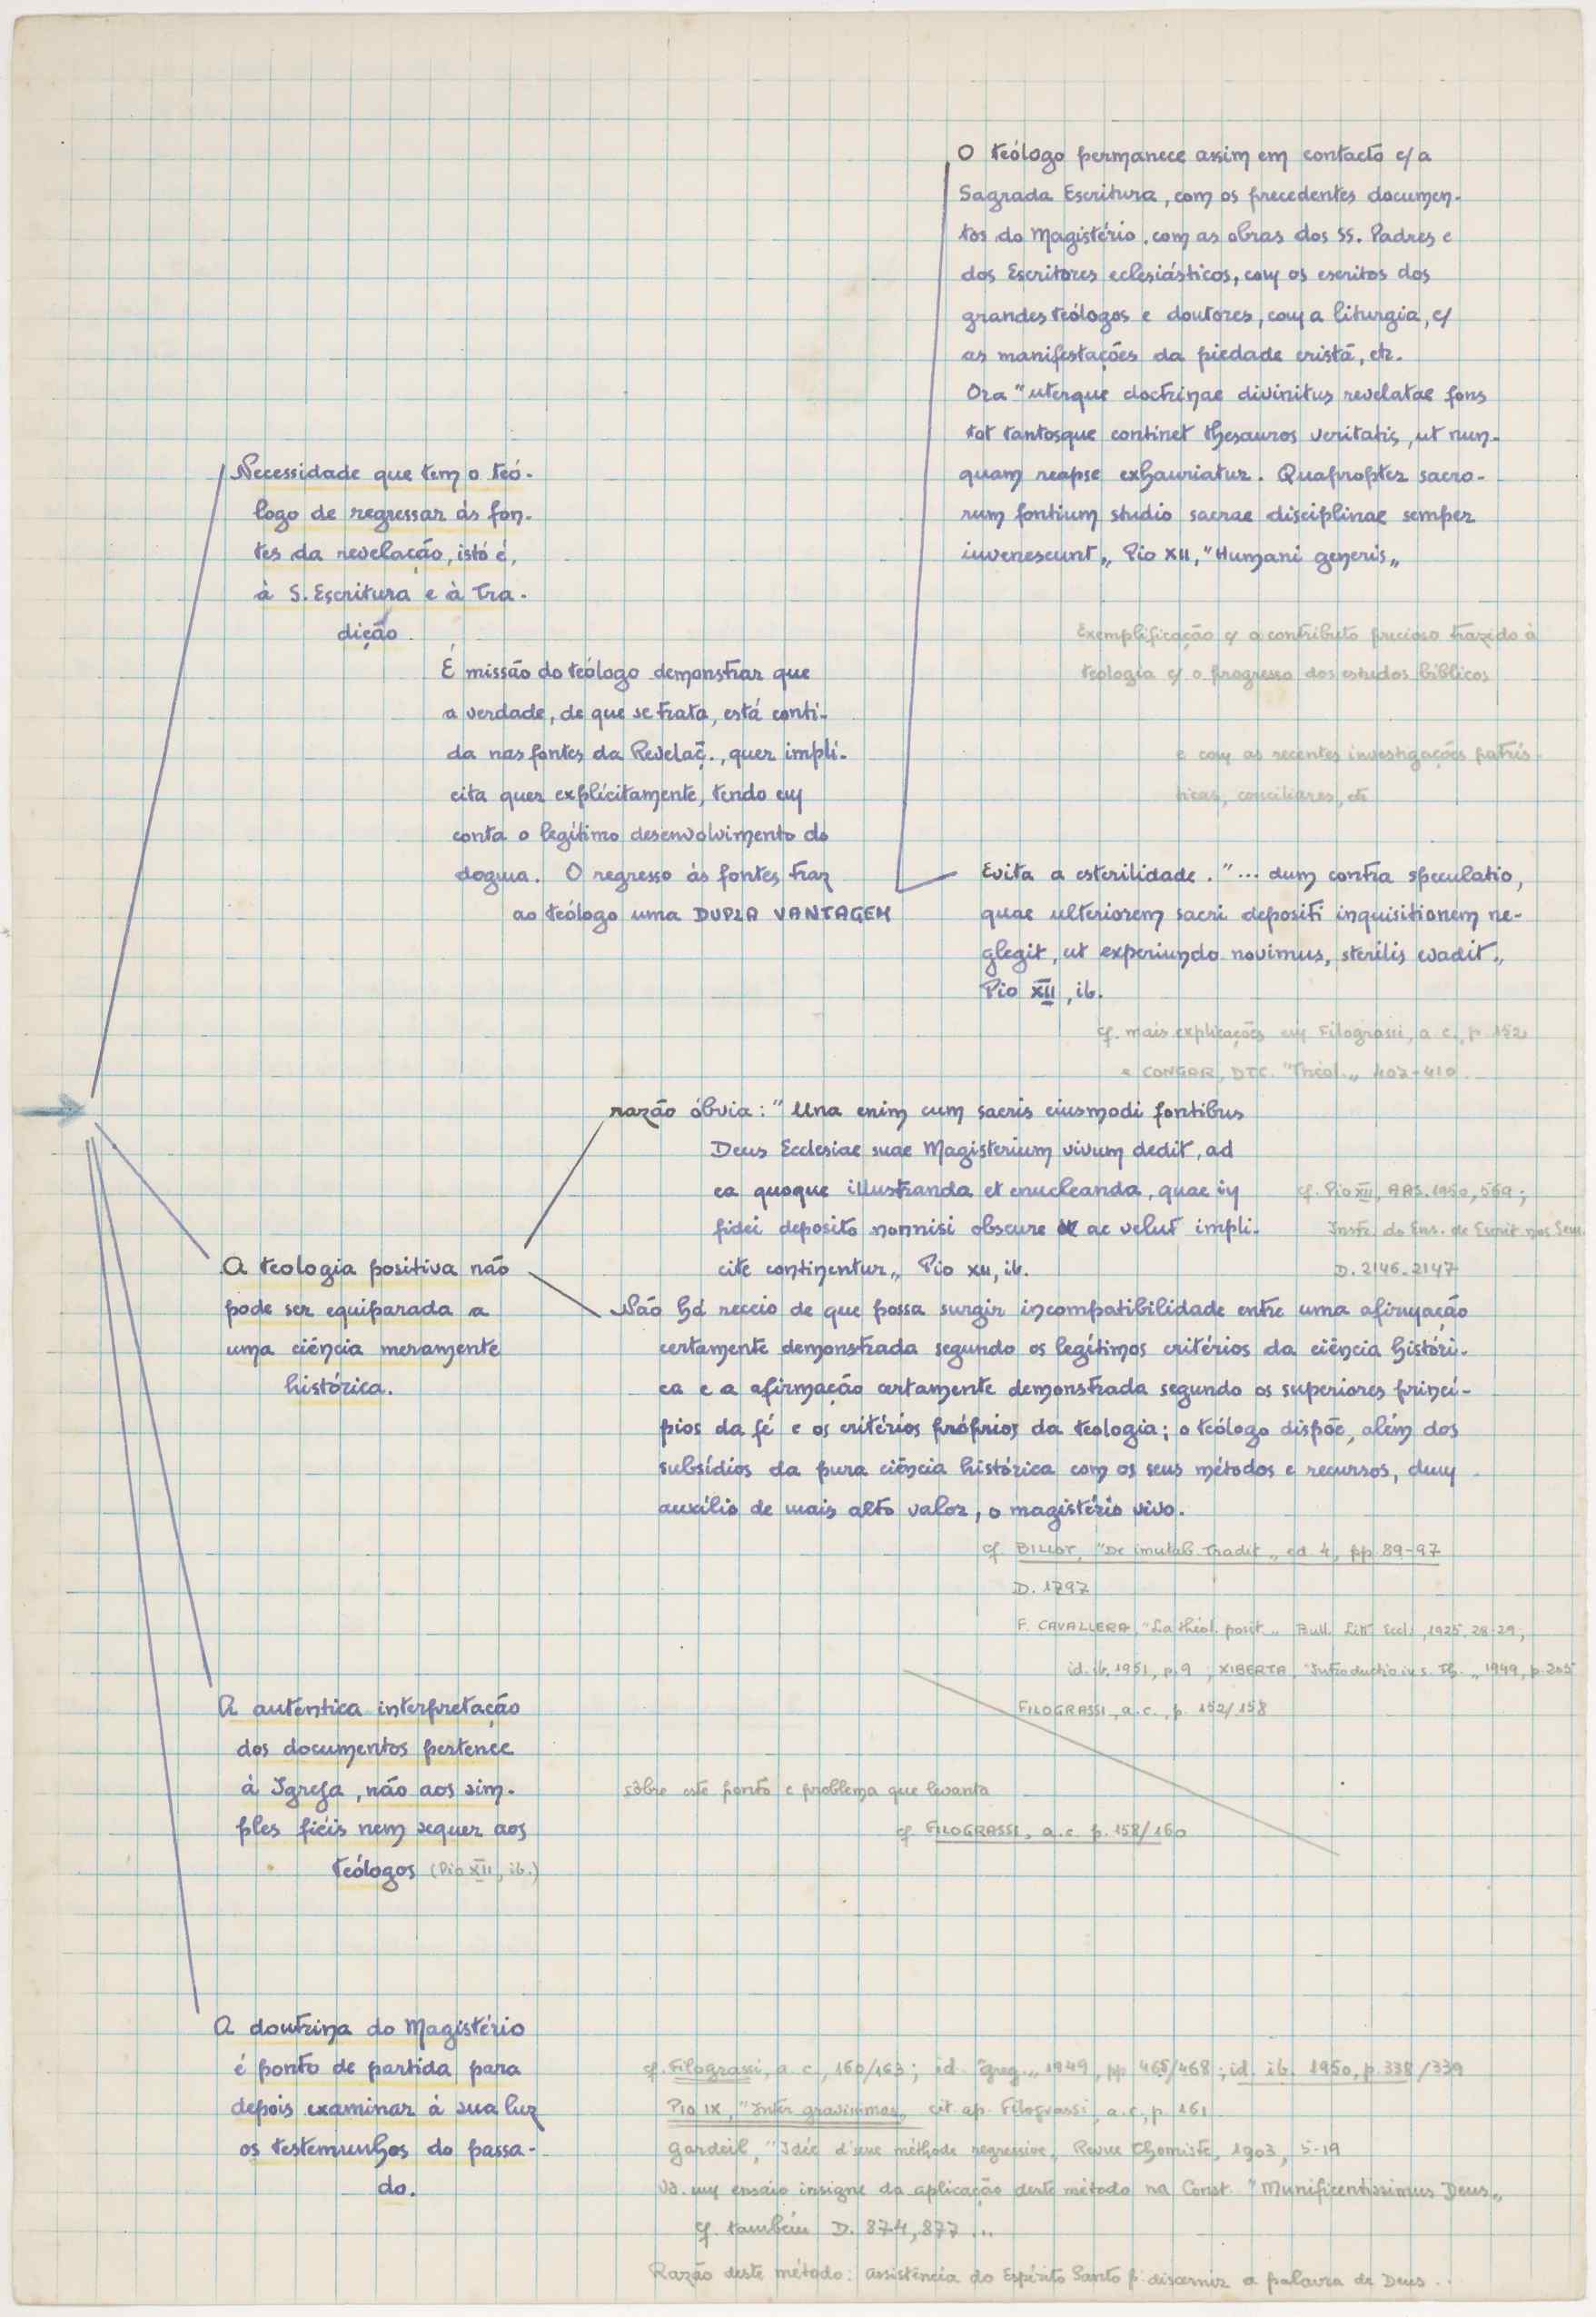 Necessidade que tem o teó-
logo de regressar às fon-
tes da revelação, isto é,
à S. Escritura e à Tra-
dição
É missão do teólogo demonstrar que
a verdade, de que se trata, está conti-
da nas fontes da Revelaç̃., quer implí-
cita quer explícitamente, tendo em
conta o legítimo desenvolvimento do
dogma. O regresso às fontes traz
ao teólogo uma DUPLA VANTAGEM
O teólogo permanece assim em contacto c/ a
Sagrada Escritura, com os precedentes documen-
tos do Magistério, com as obras dos SS. Padres e
dos Escritores eclesiásticos, com os escritos dos
grandes teólogos e doutores, com a liturgia, c/
as manifestações da piedade cristã, etc.
Ora "uterque doctrinae divinitus revelatae fons
tot tantosque continet thesauros veritatis, ut nun-
quam reapse exhauriatur. Quapropter sacro-
rum fontium studio sacrae disciplinae semper
iuvenescunt„ Pio XII, "Humani generis„
Exemplificação c/ o contributo precioso trazido à
teologia c/ o progresso dos estudos bíblicos
e com as recentes investigações patrís-
ticas, conciliares, etc
Evita a esterilidade. "... dum contra speculatio,
quae ulteriorem sacri depositi inquisitionem ne-
glegit, ut experiundo novimus, sterilis evadit„
Pio XII, ib.
cf. mais explicações em Filograssi, a. c., p. 152
e CONGAR, DTC. "Théol.„ 407-410.
A teologia positiva não
pode ser equiparada a
uma ciência meramente
histórica.
razão óbvia: "Una enim cum sacris eiusmodi fontibus
Deus Ecclesiae suae Magisterium vivum dedit, ad
ea quoque illustranda et enucleanda, quae in
fidei deposito nonnisi obscure ac velut impli-
cite continentur„ Pio XII, ib.
cf. Pio XII, AAS. 1950, 569;
Instr. do Ens. de Escrit. nos Sem.
D. 2146-2147
Não há receio de que possa surgir incompatibilidade entre uma afirmação
certamente demonstrada segundo os legítimos critérios da ciência históri-
ca e a afirmação certamente demonstrada segundo os superiores princí-
pios da fé e os critérios próprios da teologia; o teólogo dispõe, além dos
subsídios da pura ciência histórica com os seus métodos e recursos, dum
auxílio de mais alto valor, o magistério vivo.
cf. BILLOT, "De imutab. Tradit.„ ed. 4, pp. 89-97
D. 1797
F. CAVALLERA, "La théol. posit.„ Bull. Litt. Eccl., 1925, 28-29,
id. ib. 1951, p. 9; XIBERTA, "Introductio in s. Th.„ 1949, p. 205
FILOGRASSI, a. c., p. 152/158
A autêntica interpretação
dos documentos pertence
à Igreja, não aos sim-
ples fiéis nem sequer aos
teólogos (Pio XII, ib.)
sôbre este ponto e problema que levanta
cf. FILOGRASSI, a. c. p. 158/160
A doutrina do Magistério
é ponto de partida para
depois examinar à sua luz
os testemunhos do passa-
do.
cf. Filograssi, a. c., 160/163; id. "Greg.„ 1949, pp. 465/468; id. ib. 1950, p. 338/339
PIO IX, "Inter gravissimas„ cit. ap. Filograssi, a. c., p. 161
Gardeil, "Idée d'une méthode regressive„ Revue Thomiste, 1903, 5-19
Vd. um ensaio insigne da aplicação deste método na Const. "Munificentissimus Deus„
cf. também D. 874, 877 ...
Razão deste método: assistência do Espírito Santo p. discernir a palavra de Deus ..